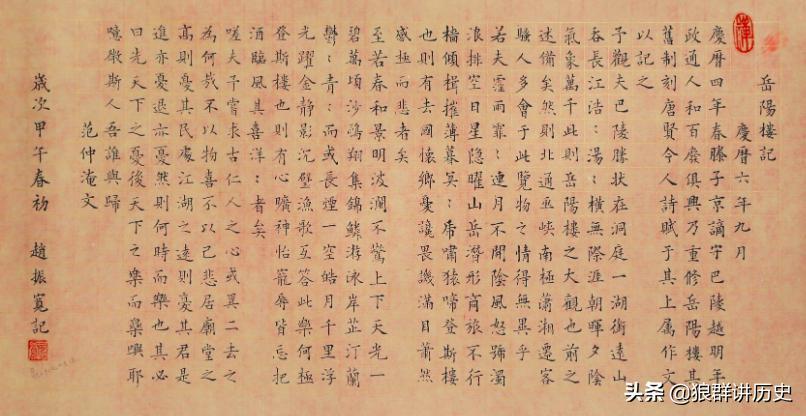 岳陽樓記
慶曆六年九月
慶曆四年春滕子京謫守巴陵越明年
政通人和百廢俱興乃重修岳陽樓其
舊制刻唐賢今人詩賦于其上属作文
以記之
予觀夫巴陵勝狀在洞庭一湖銜遠山
吞長江浩:湯:橫無際涯朝暉夕陰
氣象萬千此則岳陽樓之大觀也前之
述備矣然則北通巫峽南極瀟湘遷客
騷人多會于此覽物之情得無異乎
若夫霪雨霏:連月不開陰風怒號濁
浪排空日星隱曜山岳潛形商旅不行
檣傾楫摧薄暮冥:虎嘯猿啼登斯樓
也則有去國懷鄉憂讒畏譏滿目蕭然
感極而悲者矣
至若春和景明波瀾不驚上下天光一
碧萬頃沙鷗翔集錦鱗游泳岸芷汀蘭
鬱:青:而或長煙一空皓月千里浮
光躍金静影沉璧漁歌互答此樂何極
登斯樓也則有心曠神怡寵辱皆忘把
酒臨風其喜洋:者矣
嗟夫予嘗求古仁人之心或異二去之
為何哉不以物喜不以己悲居廟堂之
高則憂其民處江湖之遠則憂其君是
進亦憂退亦憂然則何時而樂也其必
曰先天下之憂後天下之樂而樂歟耶
噫微斯人吾誰與歸
范仲淹文
歲次甲午春初 趙振寬記
头条 @狼群讲历史